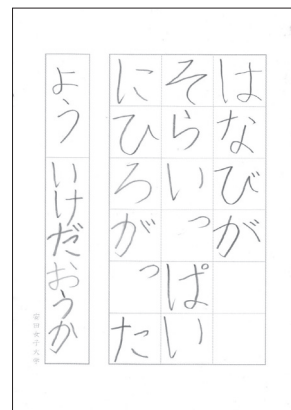 はなびが
そらいっぱい
にひろがった
よう いけだおうか
安田女子大学